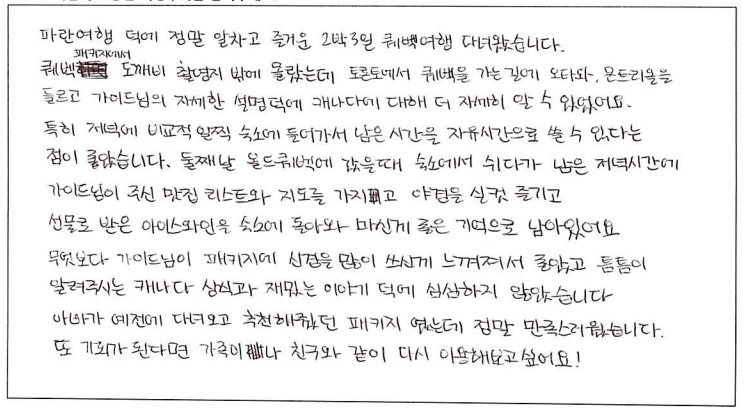 파란여행 덕에 정말 알차고 즐거운 2박3일 퀘벡여행 다녀왔습니다.
패키지에서
퀘벡 도깨비 촬영지 밖에 몰랐는데 토론토에서 퀘벡을 가는길에 오타와, 몬트리올을
들르고 가이드님의 자세한 설명덕에 캐나다에 대해 더 자세히 알 수 있었어요.
특히 저녁에 비교적 일찍 숙소에 들어가서 남은 시간을 자유시간으로 쓸 수 있다는
점이 좋았습니다. 둘째날 올드퀘벡에 갔을때 숙소에서 쉬다가 남은 저녁시간에
가이드님이 주신 맛집 리스트와 지도를 가지고 야경을 실컷 즐기고
선물로 받은 아이스와인을 숙소에 돌아와 마신게 좋은 기억으로 남아있어요
무엇보다 가이드님이 패키지에 신경을 많이 쓰신게 느껴져서 좋았고 틈틈이
알려주시는 캐나다 상식과 재밌는 이야기 덕에 심심하지 않았습니다
아빠가 예전에 다녀오고 추천해줬던 패키지 였는데 정말 만족스러웠습니다.
또 기회가 된다면 가족이나 친구와 같이 다시 이용해보고싶어요!